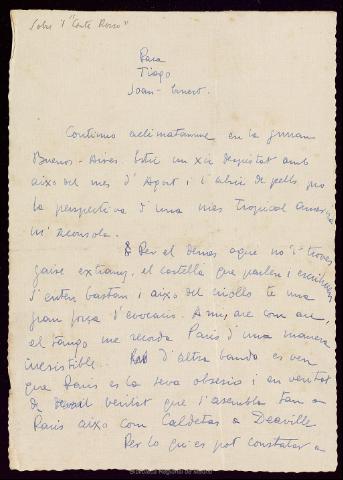 Sobre l'"Conte Rosso"
Para
Tiago
Joan-Ernest.
Continuo aclimatanme en la
Buenos-Aires. Estic un xic disgustat amb
aixo del mes d'Agost i l'abric de pells pro
la perspectiva d'una mes tropical
m'aconsola.
Per el demes aqui no s'i troba
gaire extrany. el castella que parlen i escriuen
s'enten bastant i aixo del criollo te una
gran força d'evocacio. A mi, are com are,
el tango me recorda Paris d'una manera
irresistible d'altra banda es veu
que Paris es la seva obsesio i en veritat
de veritat que s'asembla tan a
Paris aixo com Caldetas a Deaville
Per lo qui es pot constatar a